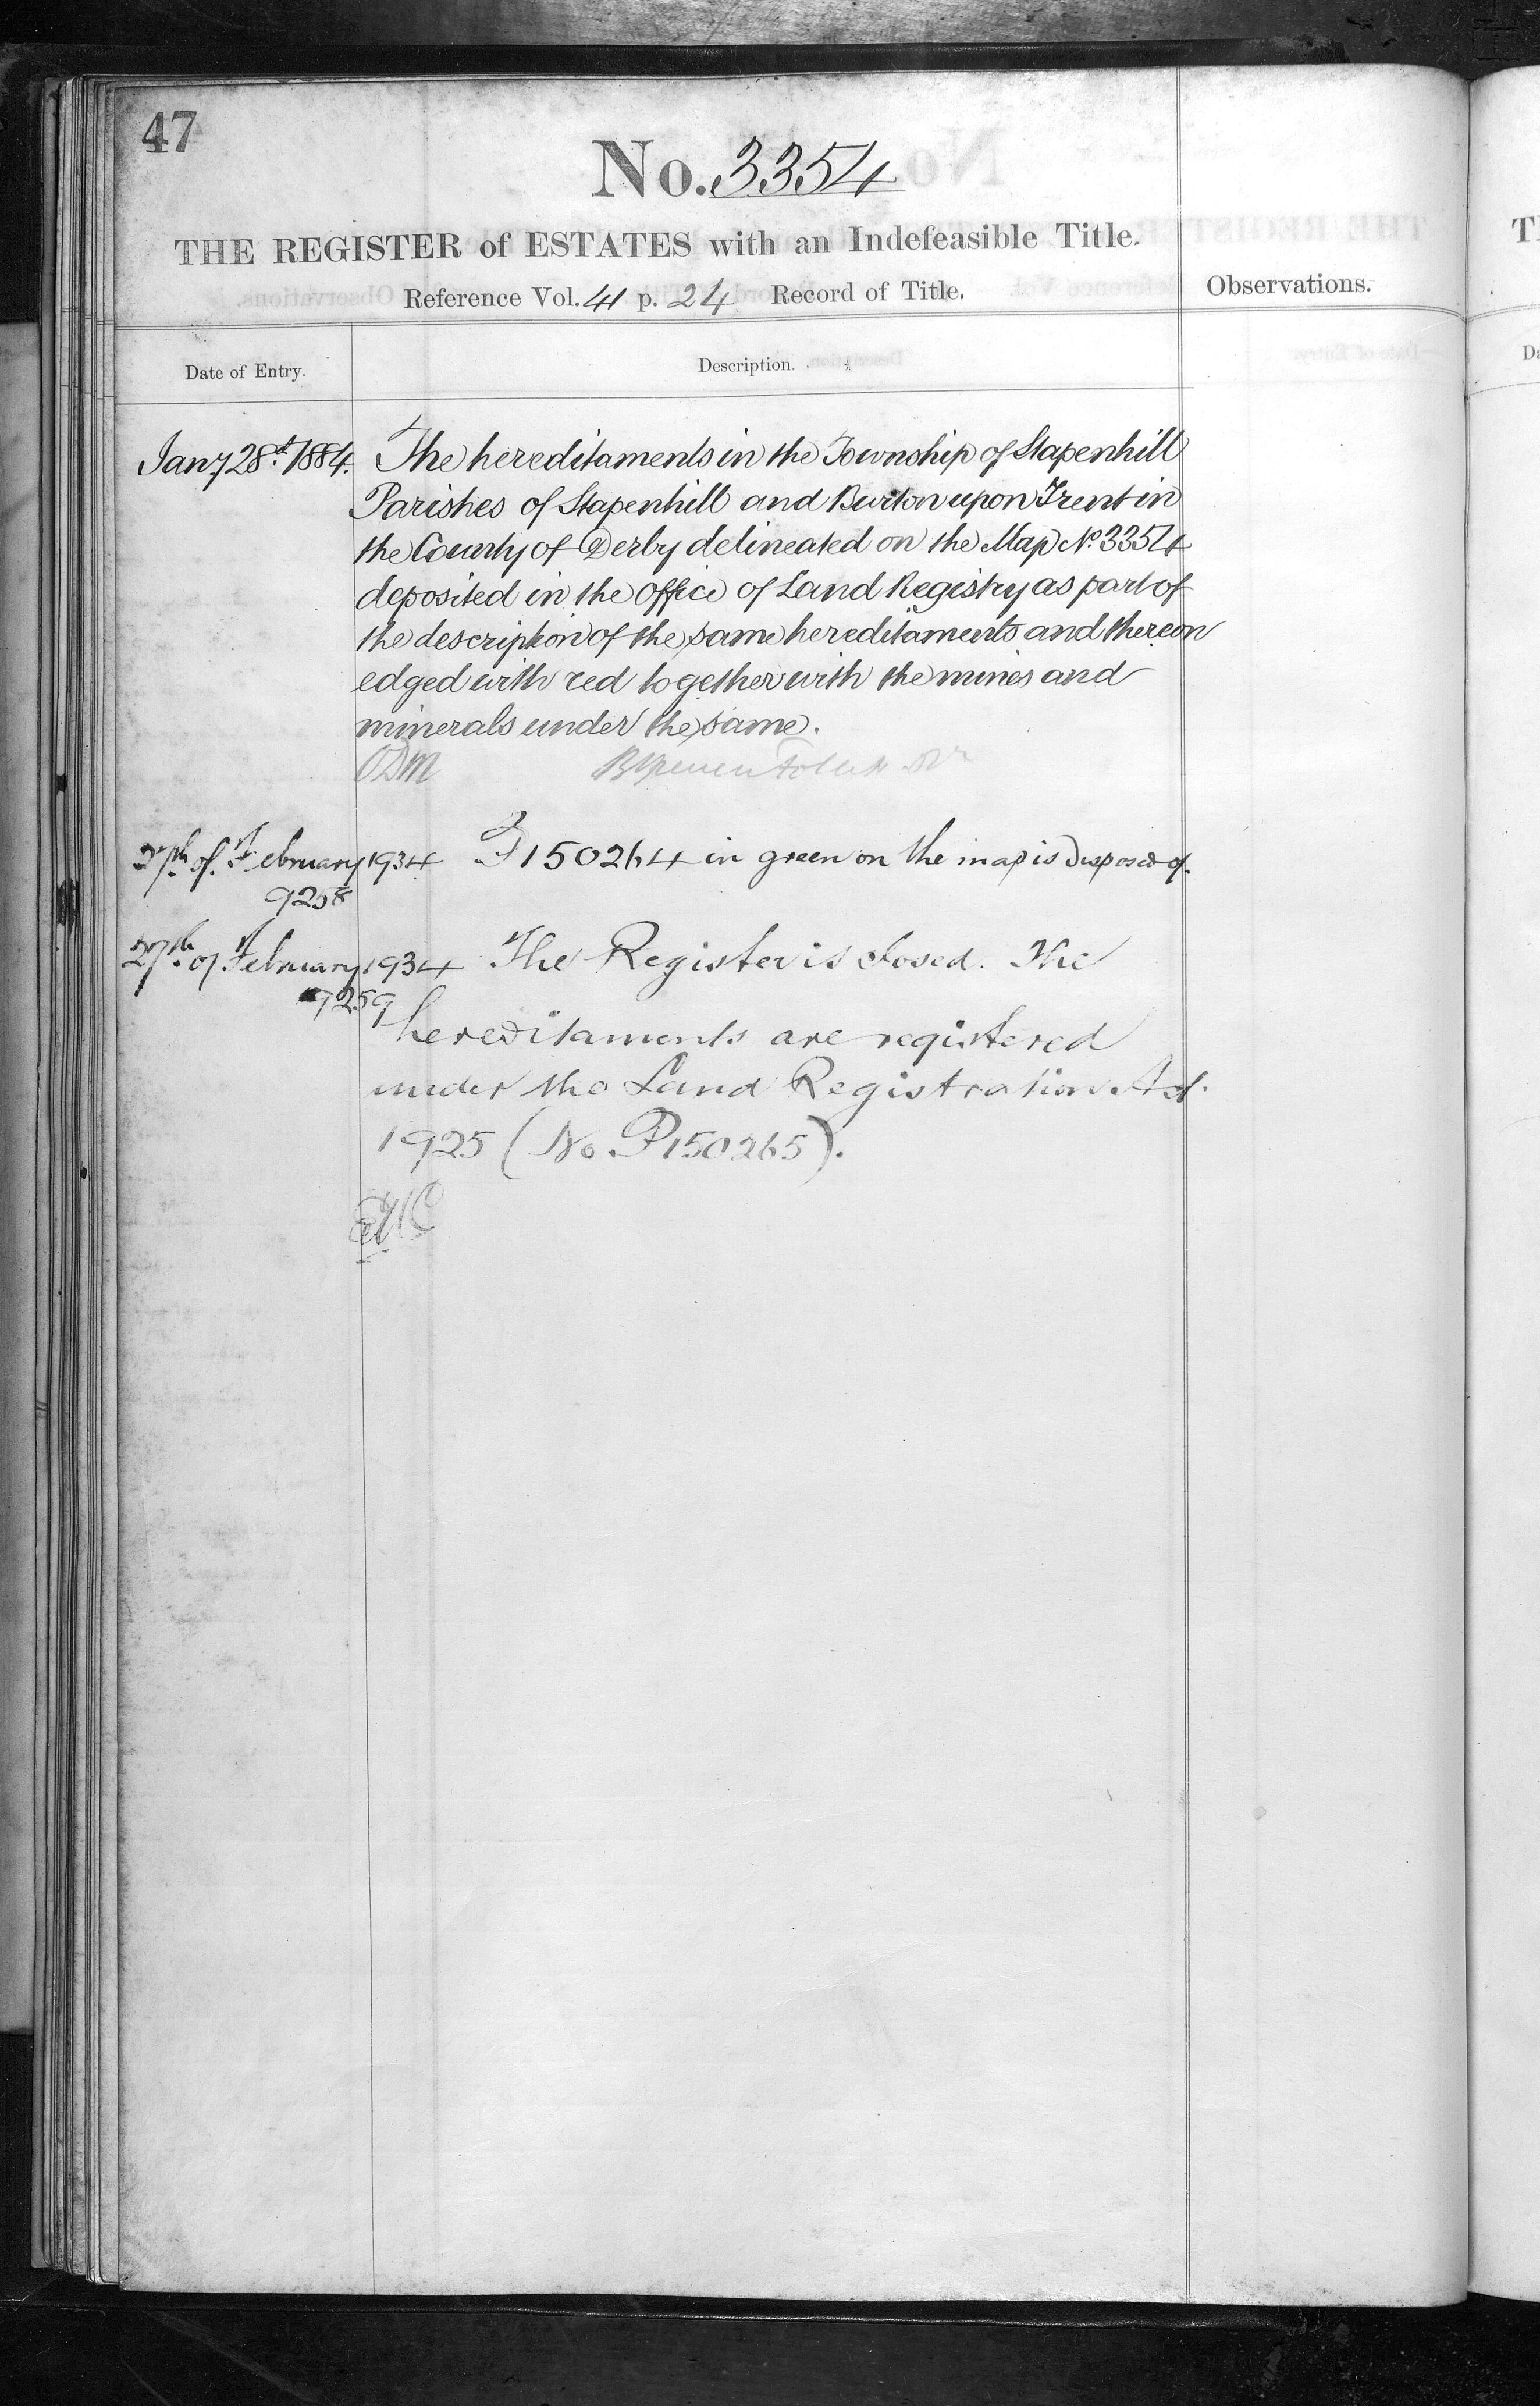 47
No. 3354
THE REGISTER of ESTATES with an Indefeasible Title.
Reference Vol. 41 p. 24 Record of Title.
Observations.
Date of Entry.
Description.
Jany 28th 1884. The hereditaments in the Township of Stapenhill
Parishes of Stapenhill and Burton upon Trent in
the County of Derby delineated on the Map No. 3354
deposited in the office of Land Registry as part of
the description of the same hereditaments and thereon
edged with red together with the mines and
minerals under the same.
27th of February 1934 P150264 in green on the map is disposed of.
9258
27th of February 1934 The Register is closed. The
9259
hereditaments are registered
under the Land Registration Act
1925 (No. P150265).